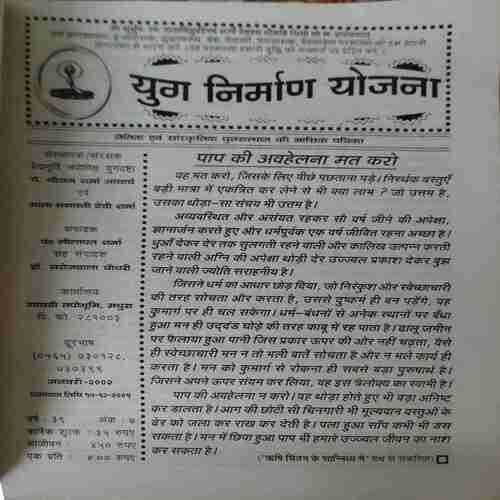 युग निर्माण योजना
नैतिक एवं सांस्कृतिक पुनरुत्थान की मासिक पत्रिका
संस्थापक/संरक्षक
पं. श्रीराम शर्मा आचार्य
एवं
माता भगवती देवी शर्मा
संपादक
पं० लीलापत शर्मा
सह संपादक
डॉ. सरोजबाला चौधरी
कार्यालय
गायत्री तपोभूमि, मथुरा
पि. को. २८१००३
दूरभाष
(०५६५) ४३०१२८,
४३०३९९
जनवरी-२००२
वर्ष : ३९ अंक : ७
वार्षिक शुल्क : ३५ रुपए
आजीवन : ४५० रुपए
एक प्रति : ४.०० रुपए
पाप की अवहेलना मत करो
वह मत करो, जिसके लिए पीछे पछताना पड़े। निरर्थक वस्तुएँ
बड़ी मात्रा में एकत्रित कर लेने से भी क्या लाभ ? जो उत्तम है,
उसका थोड़ा-सा संचय भी उत्तम है।
अव्यवस्थित और असंयत रहकर सौ वर्ष जीने की अपेक्षा,
ज्ञानार्जन करते हुए और धर्मपूर्वक एक वर्ष जीवित रहना अच्छा है।
धुआँ देकर देर तक सुलगती रहने वाली और कालिख उत्पन्न करती
रहने वाली अग्नि की अपेक्षा थोड़ी देर उज्ज्वल प्रकाश देकर बुझ
जाने वाली ज्योति सराहनीय है।
जिसने धर्म का आधार छोड़ दिया, जो निरंकुश और स्वेच्छाचारी
की तरह सोचता और करता है, उससे दुष्कर्म ही बन पड़ेंगे, वह
कुमार्ग पर ही चल सकेगा। धर्म-बंधनों से अनेक स्थानों पर बँधा
हुआ मन ही उद्दंड घोड़े की तरह काबू में रह पाता है। ढालू जमीन
पर फैलाया हुआ पानी जिस प्रकार ऊपर की ओर नहीं चढ़ता, वैसे
ही स्वेच्छाचारी मन न तो भली बातें सोचता है और न भले कार्य ही
करता है। मन को कुमार्ग से रोकना ही सबसे बड़ा पुरुषार्थ है।
जिसने अपने ऊपर संयम कर लिया, वह इस त्रैलोक्य का स्वामी है।
पाप की अवहेलना न करो। वह थोड़ा होते हुए भी बड़ा अनिष्ट
कर डालता है। आग की छोटी सी चिनगारी भी मूल्यवान वस्तुओं के
ढेर को जला कर राख कर देती है। पला हुआ साँप कभी भी डस
सकता है। मन में छिपा हुआ पाप भी हमारे उज्ज्वल जीवन का नाश
कर सकता है।
("ऋषि चिंतन के सान्निध्य में" ग्रंथ से संकलित)